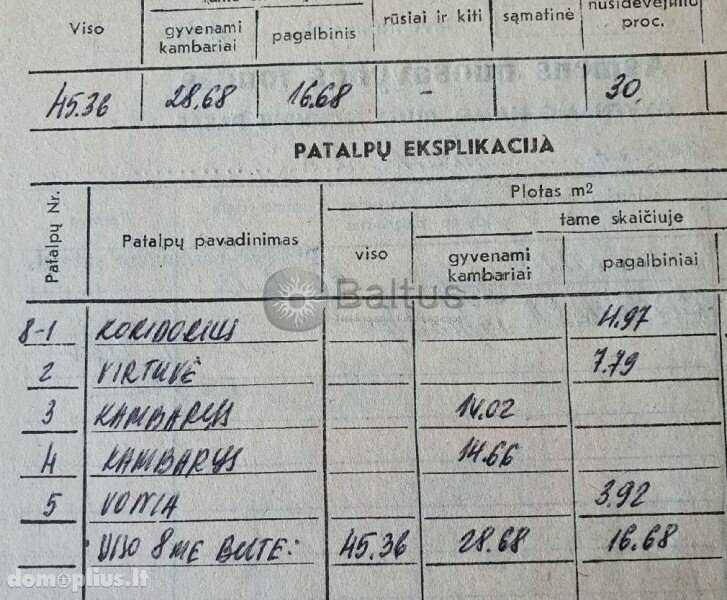 Viso gyvenami kambariai pagalbinis rūsiai ir kiti sąmatinė nusidėvėjimo proc.
45.36 28.68 16.68 - 30
PATALPŲ EKSPLIKACIJA
Patalpų Nr. Patalpų pavadinimas Plotas m2
viso tame skaičiuje
gyvenami kambariai pagalbiniai
Baltus
8-1 KORIDORIUS 4.97
2 VIRTUVĖ 7.79
3 KAMBARYS 14.02
4 KAMBARYS 14.66
5 VONIA 3.92
VISO 8ME BUTE: 45.36 28.68 16.68
domoplius.lt